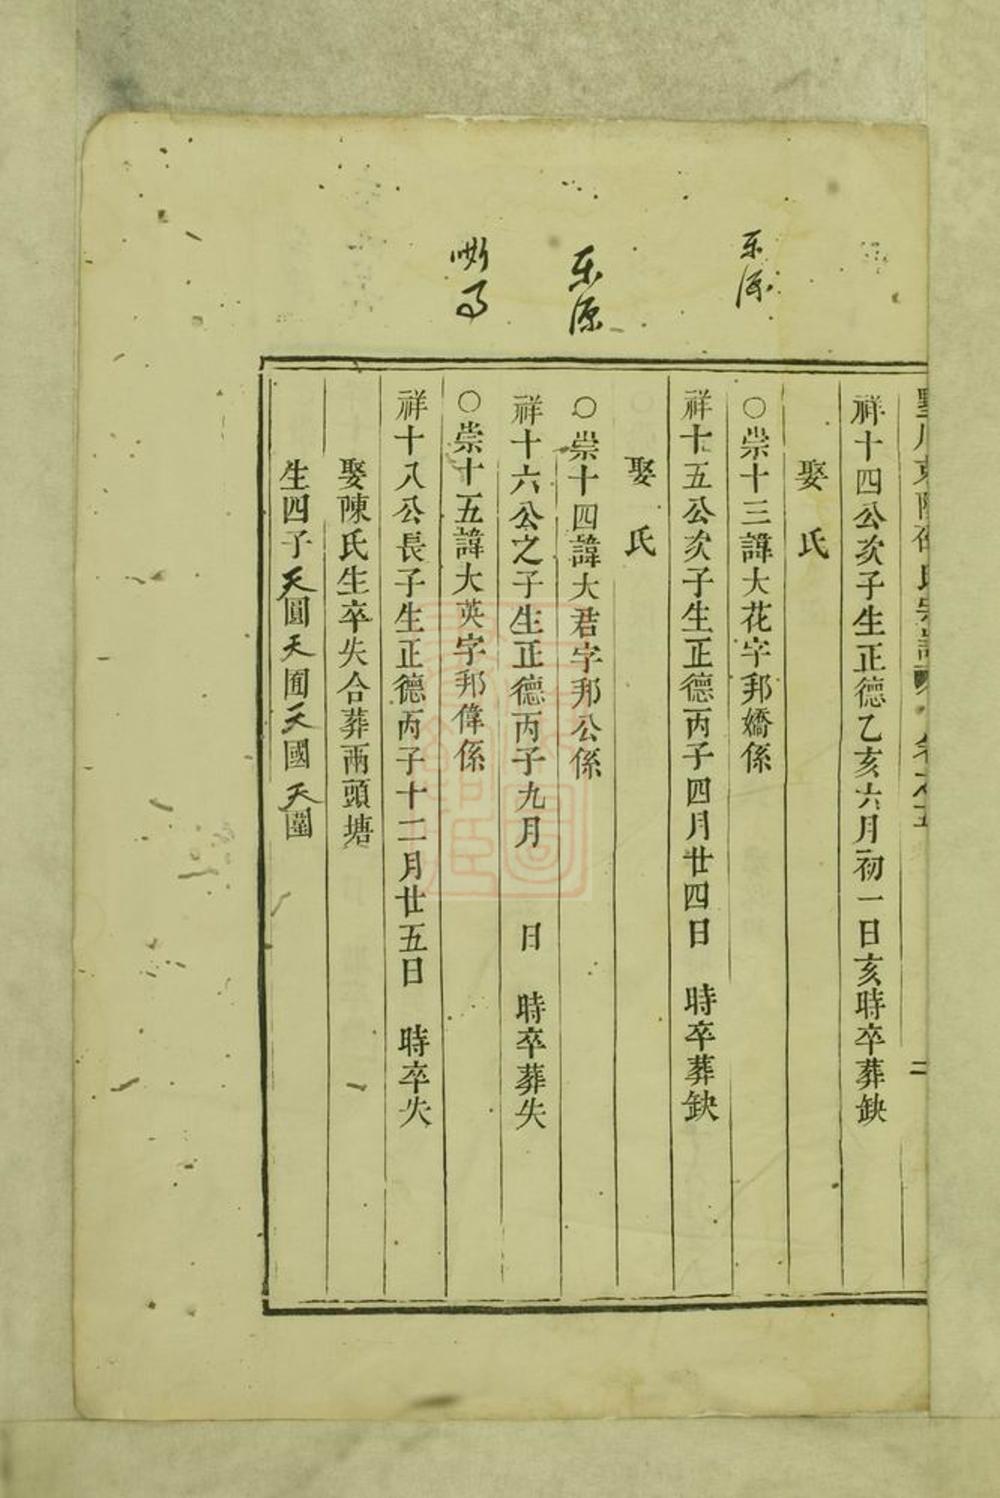 樂源
樂源
氏宗譜 卷之五
二
祥十四公次子生正德乙亥六月初一日亥時卒葬缺
娶 氏
○崇十三諱大花字邦嬌係
祥十五公次子生正德丙子四月廿四日 時卒葬缺
娶 氏
○崇十四諱大君字邦公係
祥十六公之子生正德丙子九月 日 時卒葬失
○崇十五諱大英字邦偉係
祥十八公長子生正德丙子十二月廿五日 時卒失
娶陳氏生卒失合葬兩頭塘
生四子天圓天囿天國天圍